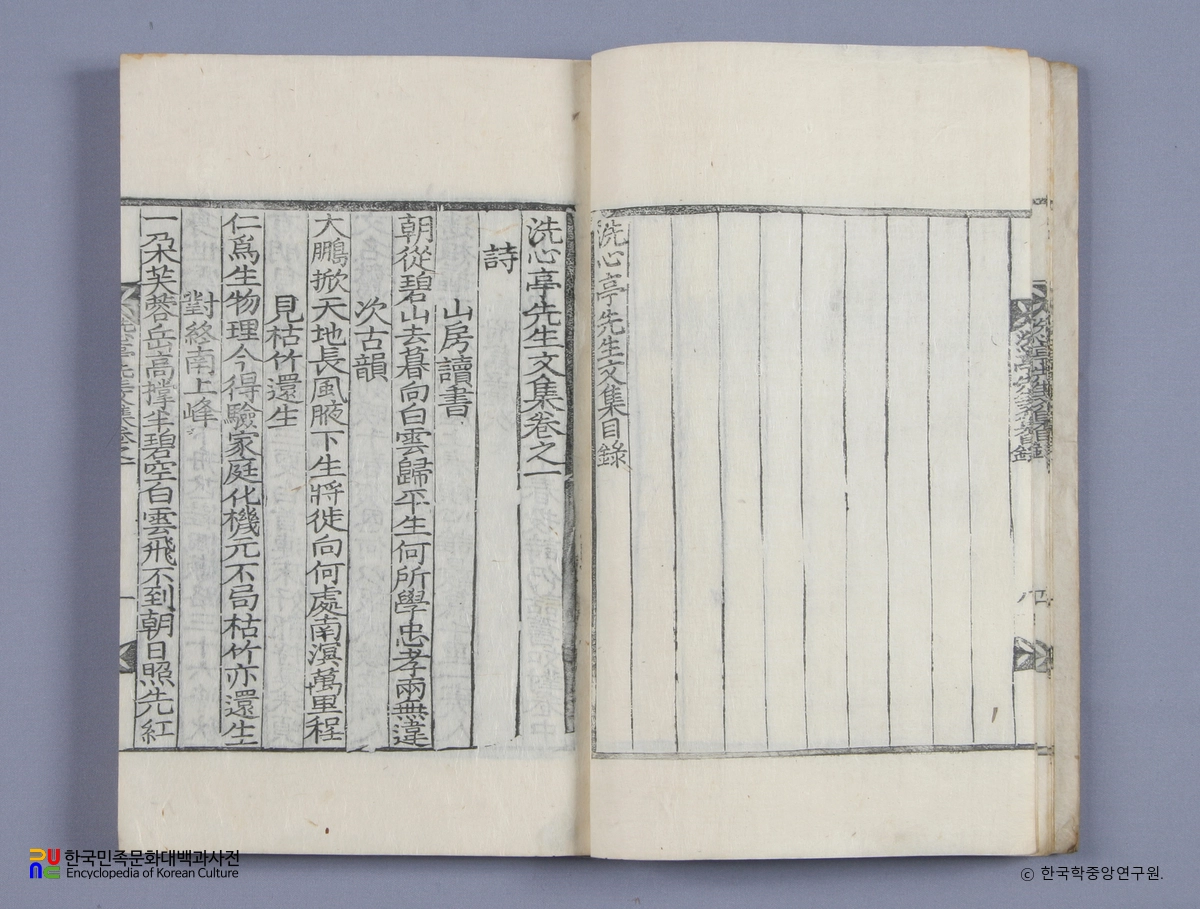 洗心亭先生文集目錄
洗心亭先生文集卷之一
詩
山房讀書
朝從碧山去暮向白雲歸平生何所學忠孝兩無違
次古韻
大鵬掀天地長風腋下生將徙向何處南溟萬里程
見枯竹還生
仁爲生物理今得驗家庭化機元不局枯竹亦還生
對終南上峰
一朶芙蓉岳高撑半碧空白雲飛不到朝日照先紅
한국민족문화대백과사전
Encyclopedia of Korean Culture
ⓒ 한국학중앙연구원.